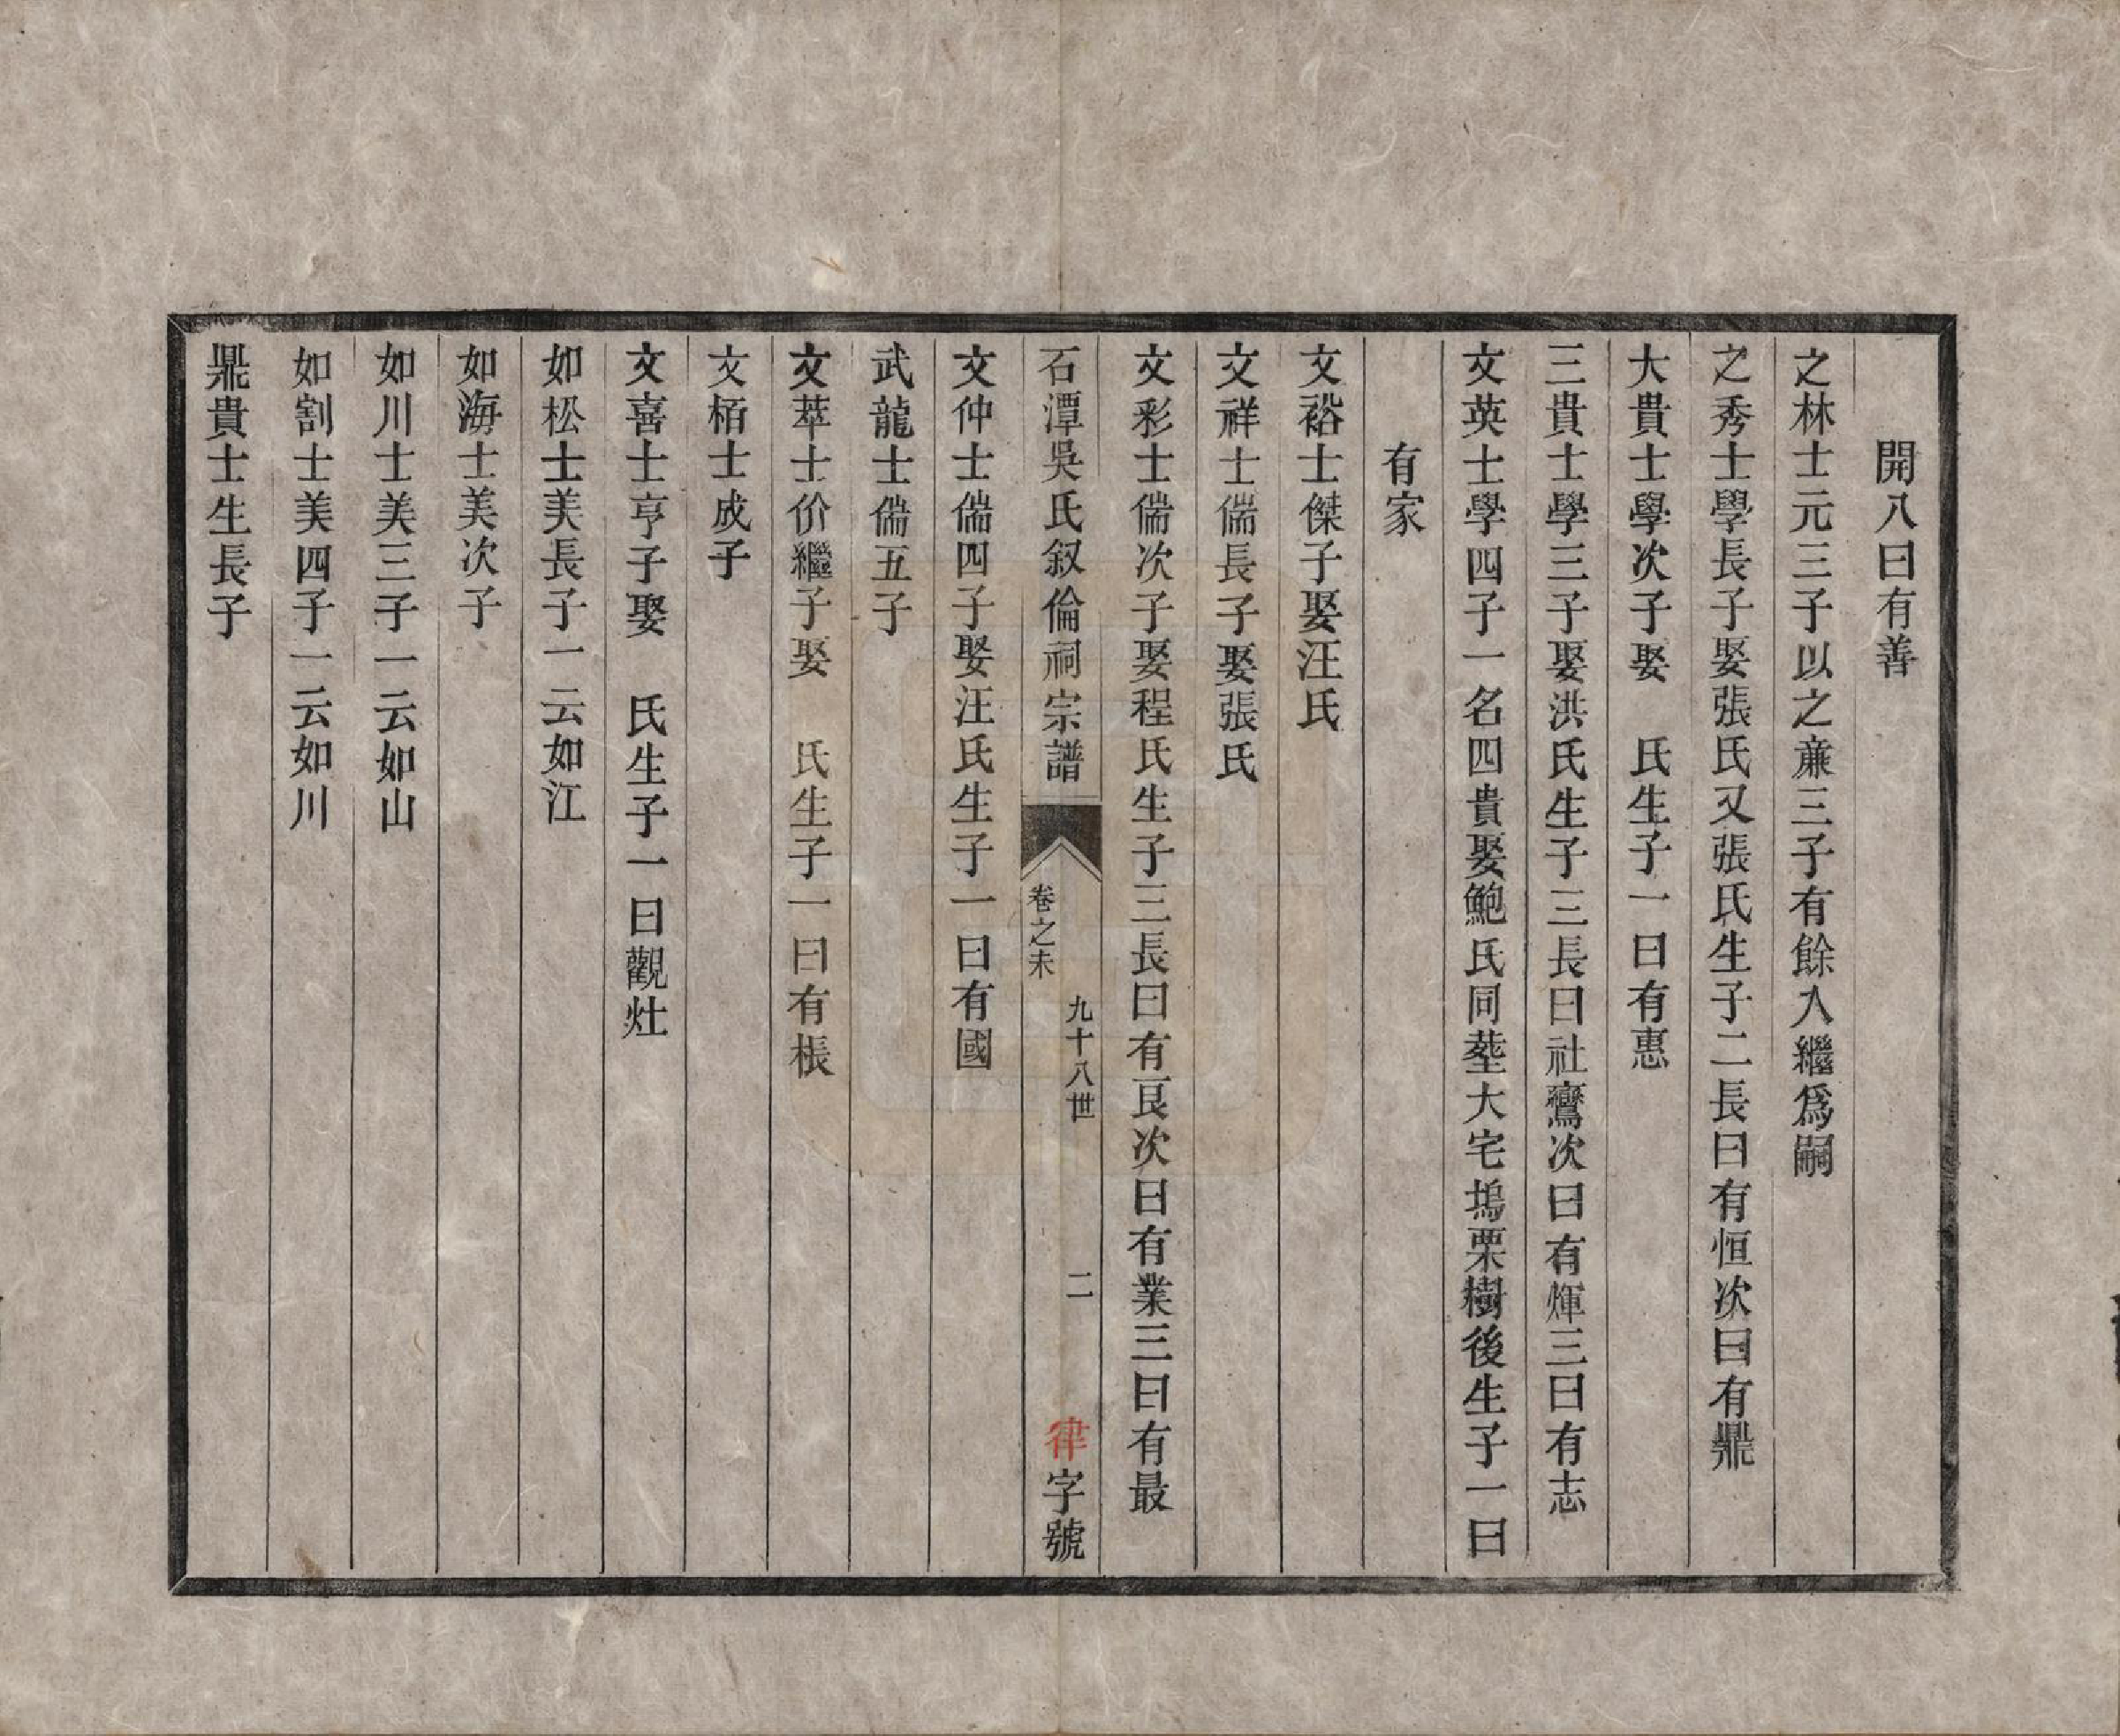 開八曰有善
之林士元三子以之亷三子有餘入繼爲嗣
之秀士學長子娶張氏又張氏生子二長曰有恒次曰有鼎
大貴士學次子娶　氏生子一曰有惠
三貴士學三子娶洪氏生子三長曰社鸞次曰有煇三曰有志
文英士學四子一名四貴娶鮑氏同塟大宅塢栗樹後生子一曰
有家
文裕士傑子娶汪氏
文祥士偳長子娶張氏
文彩士偳次子娶程氏生子三長曰有良次曰有業三曰有最
石潭吳氏叙倫祠宗譜　卷之末　九十八世　二　律字號
文仲士偳四子娶汪氏生子一曰有國
武龍士偳五子
文萃士价繼子娶　氏生子一曰有棖
文栢士成子
文喜士亨子娶　氏生子一曰觀灶
如松士美長子一云如江
如海士美次子
如川士美三子一云如山
如割士美四子一云如川
鼎貴士生長子